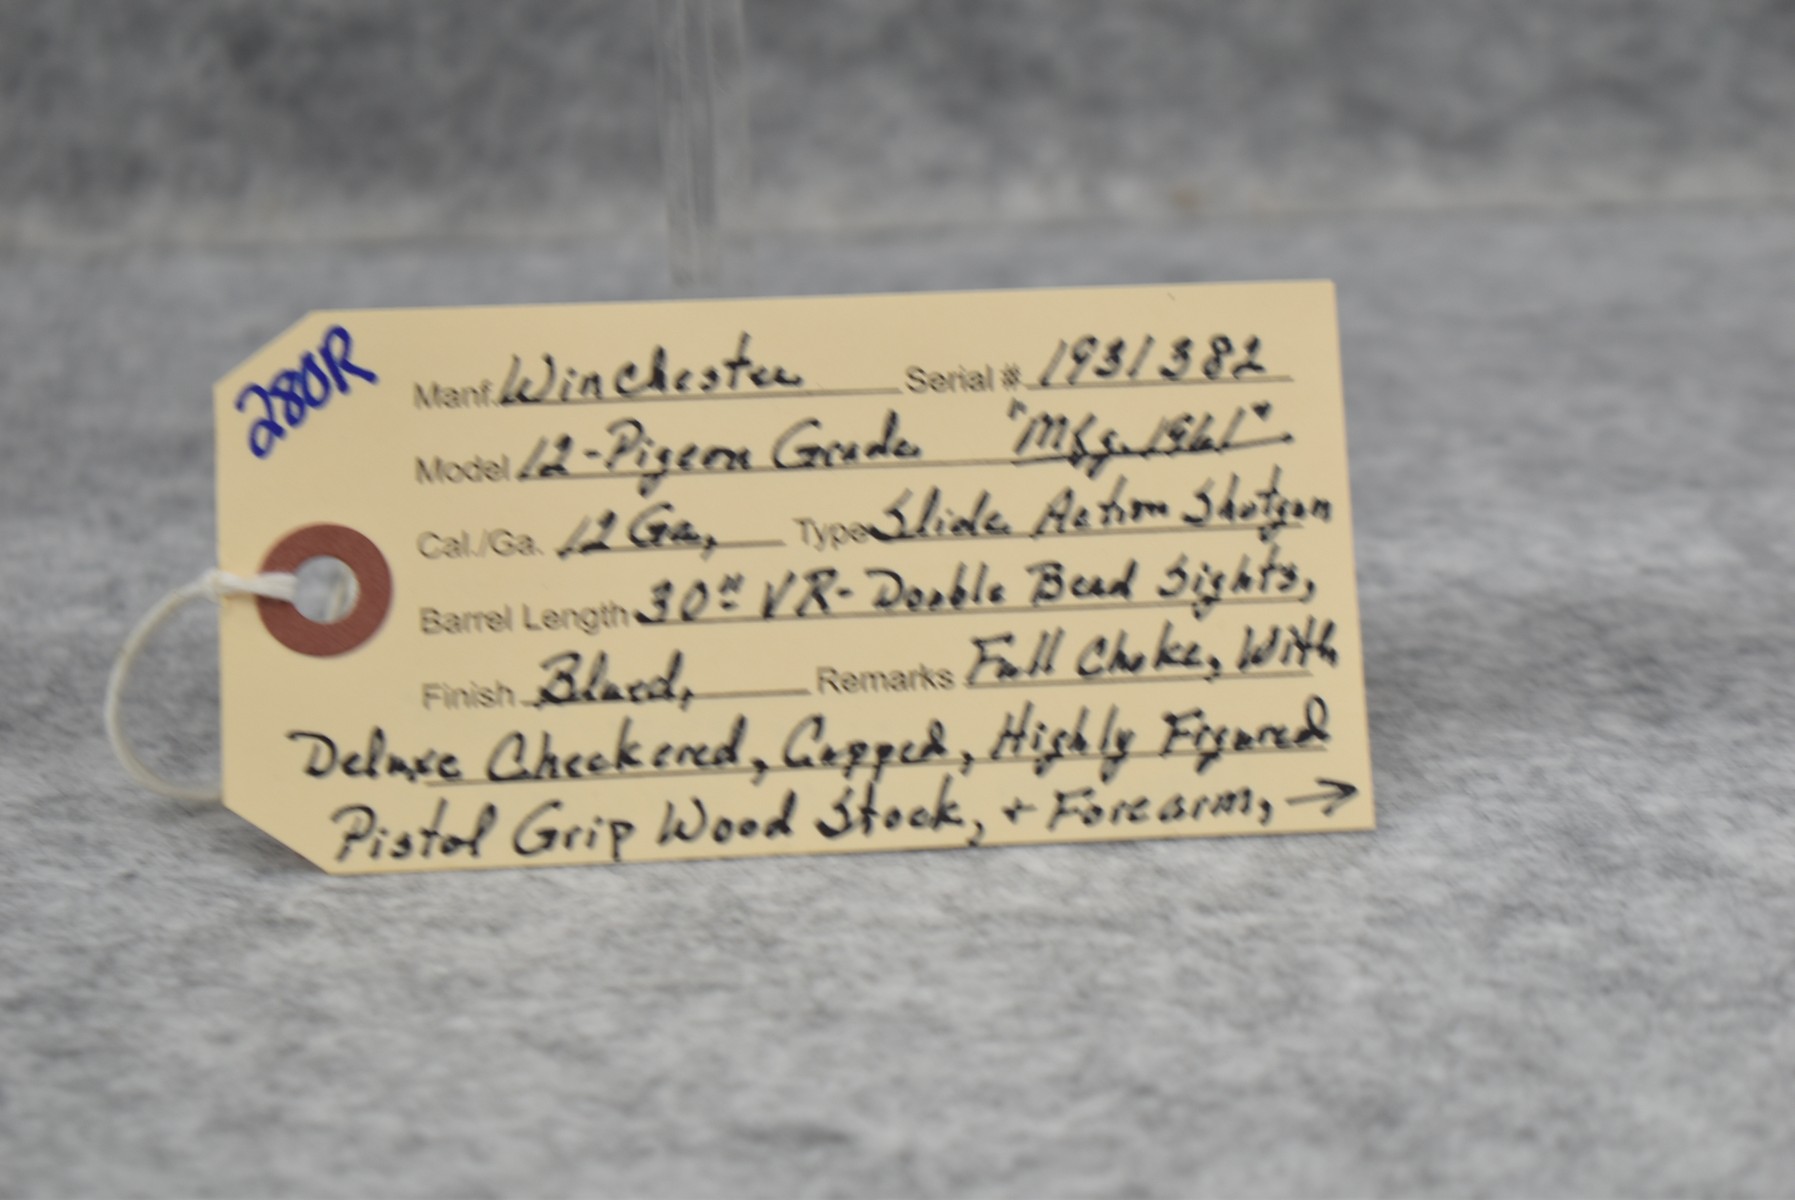 280R
Manf. Winchester Serial # 1931382
Model 12-Pigeon Grade "Mfg. 1961"
Cal./Ga. 12 Ga, Type Slide Action Shotgun
Barrel Length 30" VR- Double Bead Sights,
Finish Blued, Remarks Full Choke, With
Deluxe Checkered, Capped, Highly Figured
Pistol Grip Wood Stock, + Forearm, →